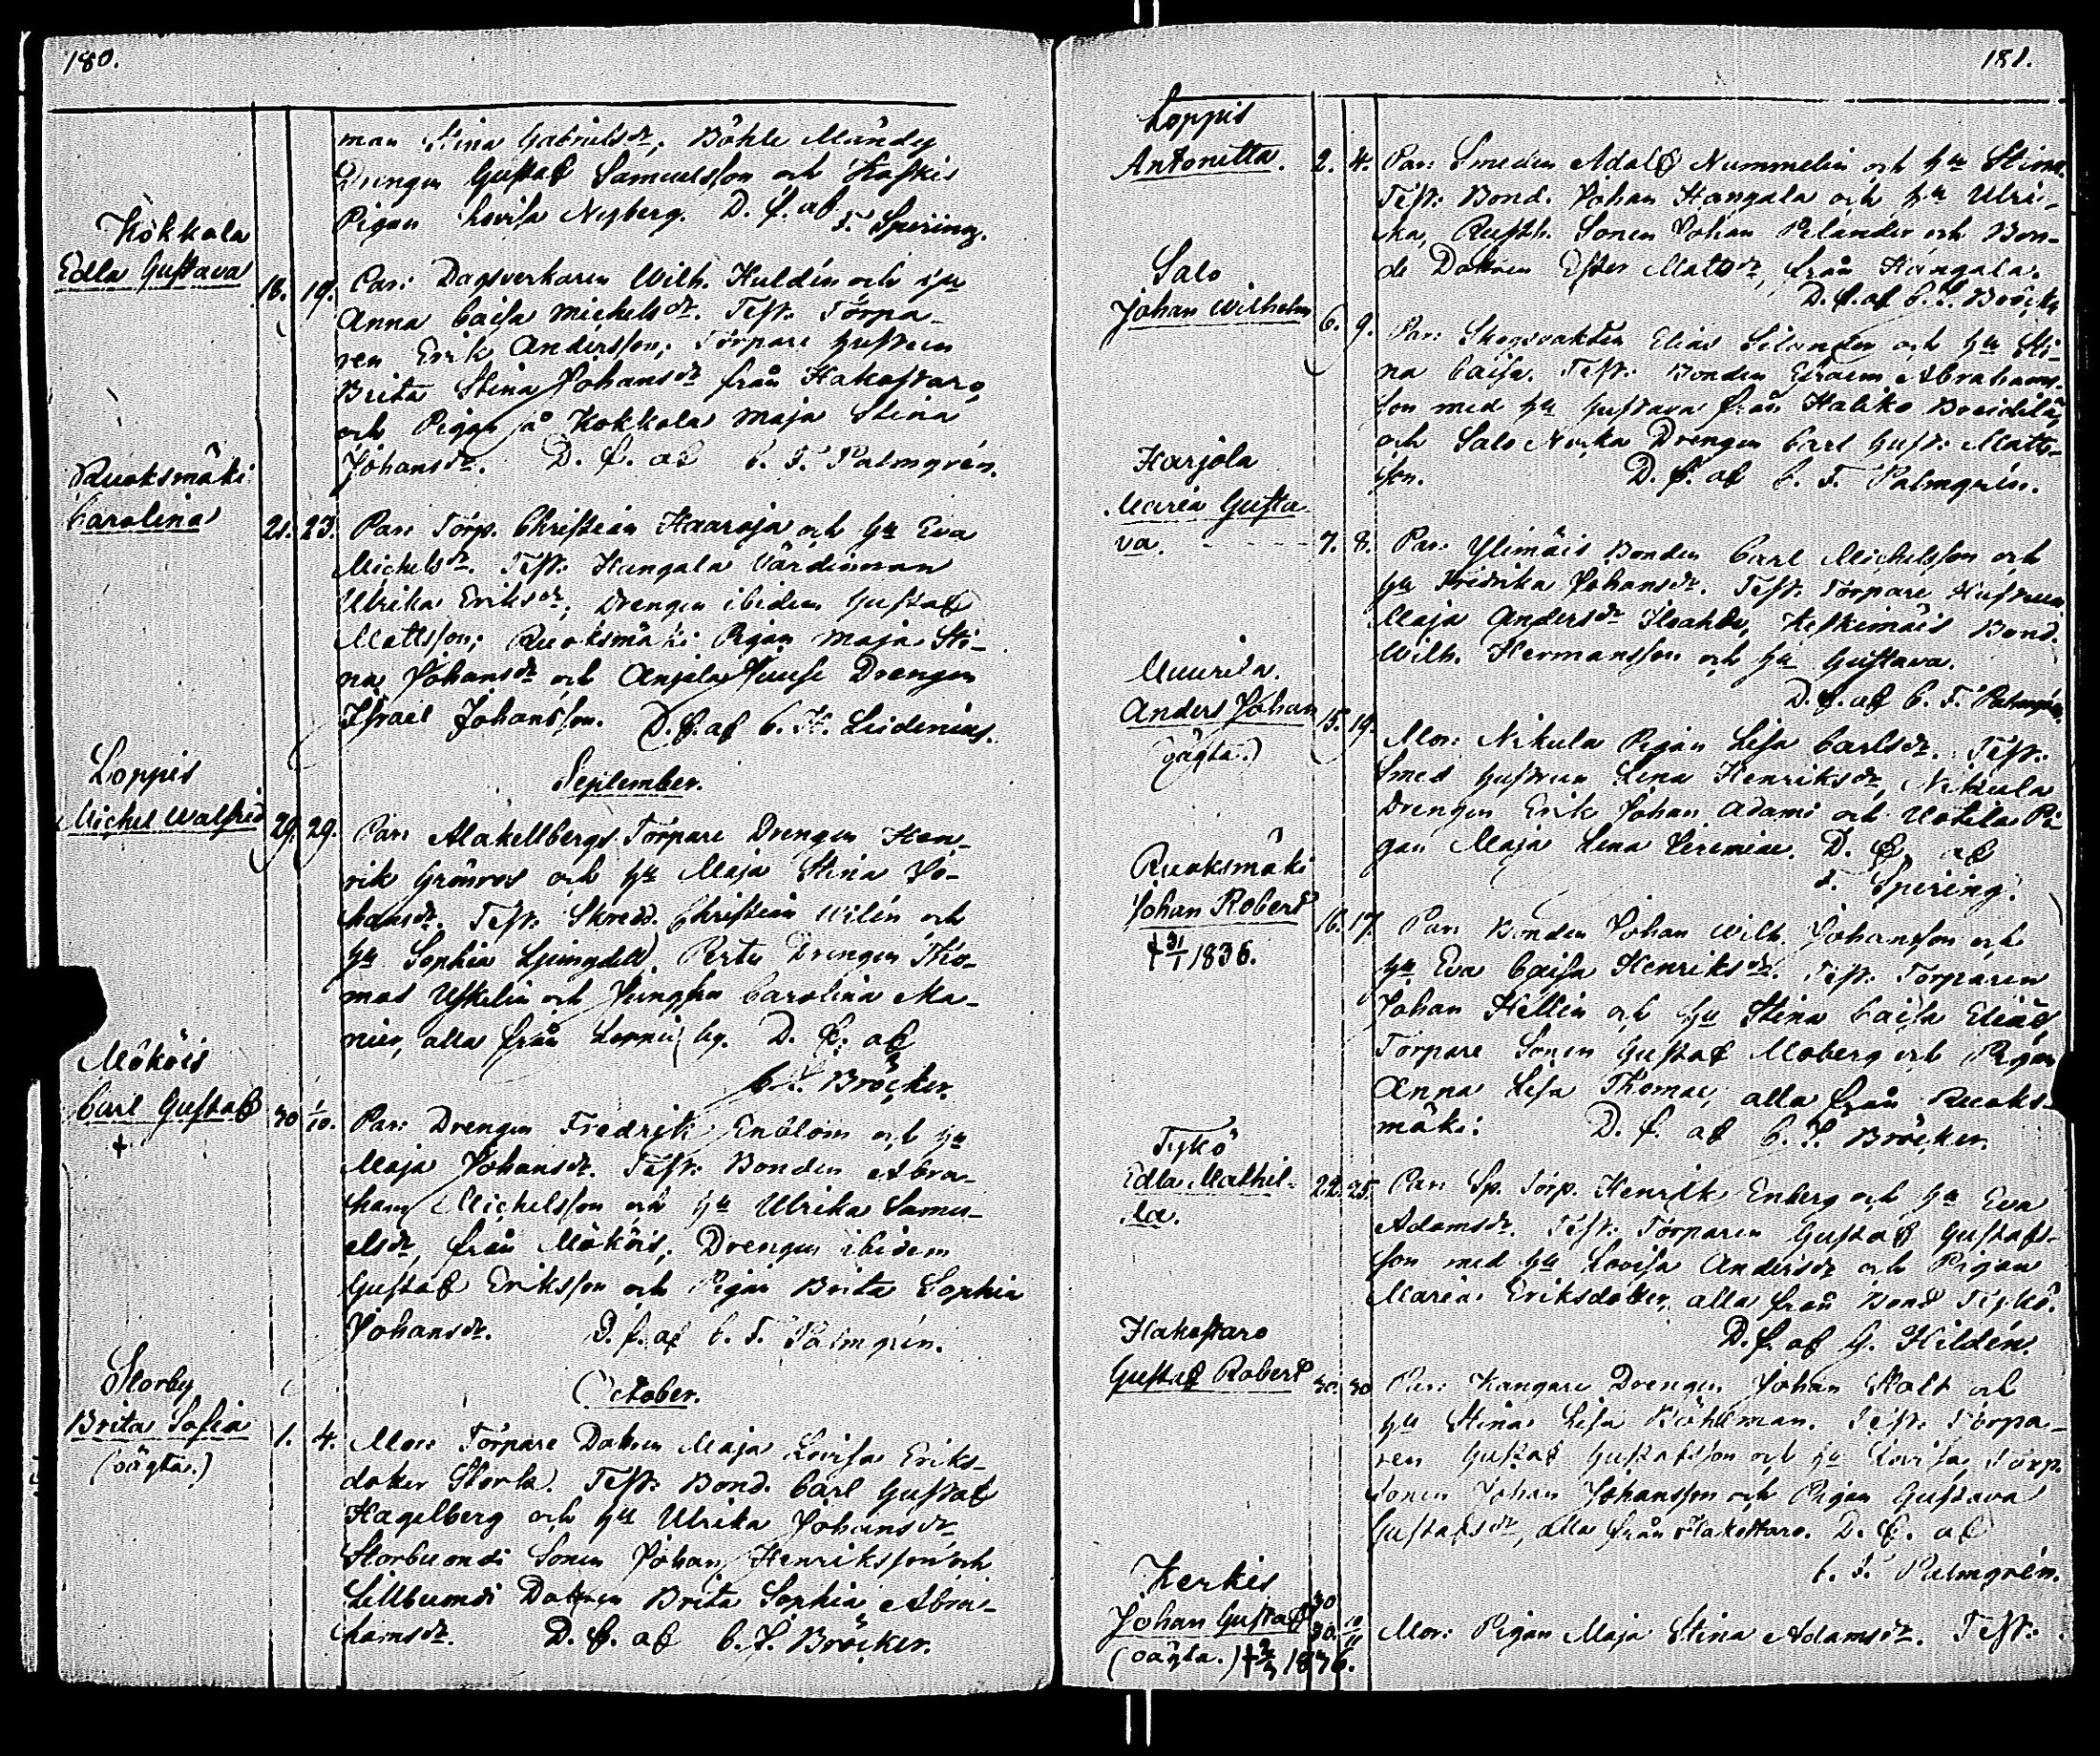 180.
man Stina Gabrielsdr, Böhle Måndy
Drengen Gustaf Samuelsson och Koskis
Pigan Lovisa Nyberg. D. f. af F. Spiring.
Kokkola
Edla Gustava 18. 19. Par: Dagsverkaren Wilh. Huldin och hu
Anna Caisa Michelsdr. Test: Torpa-
ren Erik Andersson, Torpare hustrun
Brita Stina Johansdr från Hakostaro
och Pigan på Kokkola Maja Stina
Johansdr. D. f. af C. F. Palmgrén.
Ruoksmäki
Carolina 21. 23. Par: Torp. Christian Haaroja och hu Eva
Michelsdr. Test: Kangala Värdinnan
Ulrika Eriksdr, Drengen ibidem Gustaf
Mattsson; Ruoksmäki Pigan Maja Sti-
na Johansdr och Anjala Drengen
Israel Johansson. D. f. af C. H. Lidenius.
September.
Loppis
Michel Walfrid 29. 29. Par: Makellbergs Torpare Drengen Hen-
rik Grönros och hu Maja Stina Jo-
hansdr. Test: Skredd. Christian Wilén och
hu Sophia Ljungdell, Pertu Drengen Tho-
mas Uskelin och Jungfru Carolina Ma-
nier, alla från Loppis by. D. f. af
C. F. Bröcker.
Mököis
Carl Gustaf 30 1/10. Par: Drengen Fredrik Enblom och hu
+
Maja Johansdr. Test: Bonden Abra-
ham Michelsson och hu Ulrika Samu-
elsdr, från Mököis, Drengen ibidem
Gustaf Eriksson och Pigan Brita Sophia
Johansdr. D. f. af C. F. Palmgrén.
October.
Storby
Brita Sofia 1. 4. Mor: Torpare Dottren Maja Lovisa Eriks-
(oägta.)
dotter Stork. Test: Bond. Carl Gustaf
Hagelberg och hu Ulrika Johansdr
Storbuondi Sonen Johan Henriksson och
Lillbuondi Dottren Brita Sophia Abra-
hamsdr. D. f. af C. F. Bröcker.
181.
Loppis
Antonetta. 2. 4. Par: Smeden Adolf Nummelin och hu Stina.
Test: Bond. Johan Hangala och hu Ulri-
ka, Rusth. Sonen Johan Pelander och Bon-
de Dottren Ester Mattsdr, från Hangala.
D. f. af C. F. Bröcker
Salo
Johan Wilhelm 6. 9. Par: Skogsvakten Elias Silander och hu Sti-
na Caisa. Test: Bonden Efraim Abrahams-
son med hu Gustava från Haliko
och Salo Drengen Carl Gust. Matts-
son. D. f. af C. F. Palmgrén.
Harjola
Maria Gusta-
va. 7. 8. Par: Ylimäis Bonden Carl Michelsson och
hu Fredrika Johansdr. Test: Torpare Hustrun
Maja Andersdr, Keskimäis Bond.
Wilh. Hermansson och hu Gustava.
D. f. af C. F. Palmgrén.
Muurila.
Anders Johan 15. 19. Mor: Nikula Pigan Lisa Carlsdr. Test:
(oägta.)
Smed hustrun Lena Henriksdr, Nikula
Drengen Erik Johan Adami och Uotila Pi-
gan Maja Lena Jeremiae. D. f. af
F. Spiring.
Ruoksmäki
Johan Robert 16. 17. Par: Bonden Johan Wilh. Johansson och
+ 31/1 1836.
hu Eva Caisa Henriksdr. Test: Torparen
Johan Hellin och hu Stina Caisa Eliæ,
Torpare Sonen Gustaf Moberg och Pigan
Anna Lisa Thomae, alla från Ruoks-
mäki. D. f. af C. F. Bröcker.
Tykö
Edla Mathil-
da. 22. 25. Par: Sp. Torp. Henrik Enberg och hu Eva
Adamsdr. Test: Torparen Gustaf Gustafs-
son med hu Lovisa Andersdr och Pigan
Maria Eriksdotter, alla från Bond Tykö.
D. f. af G. Hildén.
Hakostaro
Gustaf Robert 30. 30 Par: Kangare Drengen Johan Stolt och
hu Stina Lisa Böhlman. Test: Torpa-
ren Gustaf Gustafsson och hu Lovisa, Torp.
Sonen Johan Johansson och Pigan Gustava
Gustafsdr, alla från Hakostaro. D. f. af
C. F. Palmgrén.
Kerkis
Johan Gustaf 30 10/11 Mor: Pigan Maja Stina Adamsdr. Test:
(oägta.) + 1836.